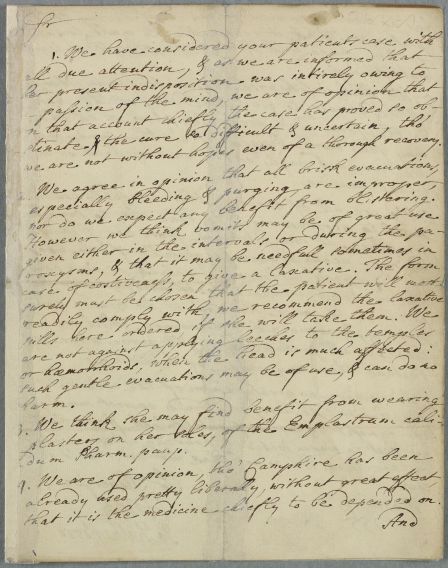 Sr
1. We have considered your patients case with
all due attention, & as we are informed that
her present indisposition was intirely owing to
passion of the mind, we are of opinion that
on that account chiefly the case has proved so ob-
stinate & the cure so difficult & uncertain, tho'
we are not without hopes even of a thorough recovery.
We agree in opinion that all brisk evacuations,
especially bleeding & purging are improper,
nor do we expect any benefit from blistering.
However we think vomits may be of great use
given either in the intervals or during the pa-
roxysms, & that it may be needfull sometimes in
case of costiveness to give a laxative. The form
surely must be chosen that the patient will most
readily comply with, we recommend the laxative
pills here ordered if she will take them. We
are not against applying leeches to the temples
or hæmorrhoids, when the head is much affected:
such gentle evacuations may be of use, & can do no
harm.
3. We think she may find benefit from wearing
plasters on her soles, of the Emplastrum cali-
dum Pharm. paup.
4. We are of opinion, tho' Camphire has been
already used pretty liberally, without great effect
that it is the medicine chiefly to be depended on.
And